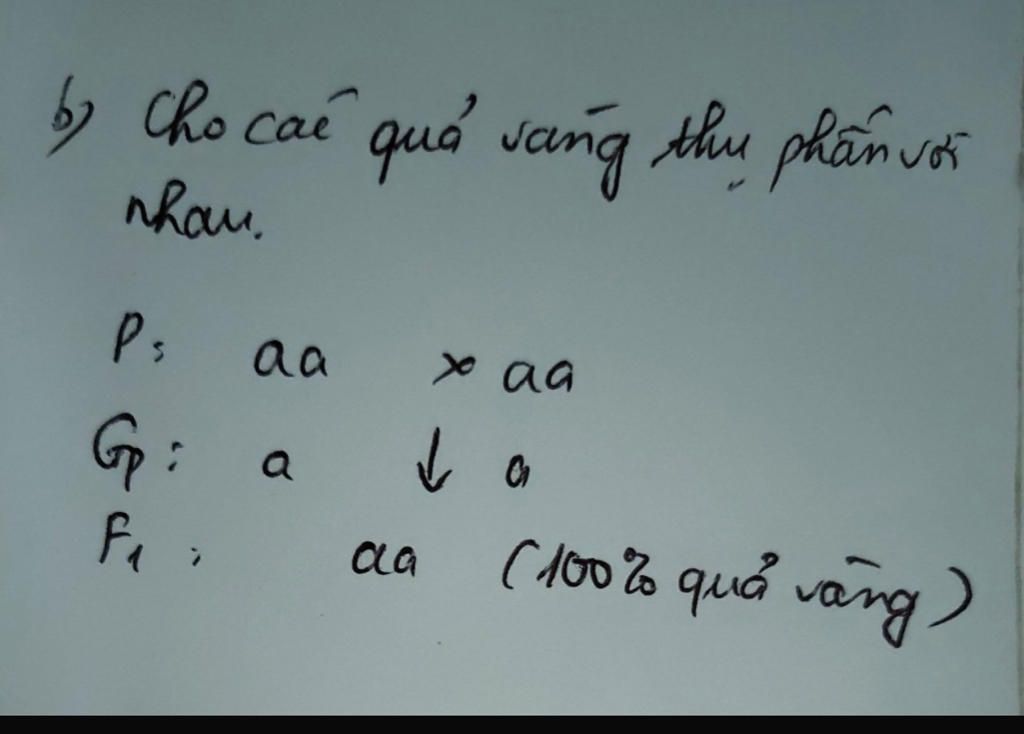 b) Cho các quả vàng thụ phấn với
nhau.
P: aa x aa
Gp: a ↓ a
F1: aa (100% quả vàng)